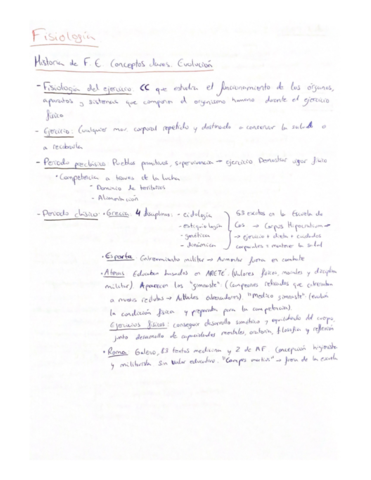 Fisiología
Historia de F.E. Conceptos Evolución
- Fisiología del ejercicio: CC que estudia el funcionamiento de los órganos,
aparatos y sistemas que componen el organismo humano durante el ejercicio
físico
- Ejercicio: Cualquier mov. corporal repetido y destinado a conservar la salud
o a recobrarla
- Periodo prehistoria: Pueblos primitivos, supervivencia → ejercicio Demostrar vigor físico
• Competencia a través de la lucha
- Dominio de territorios
- Alimentación
- Periodo clásico • Grecia: 4 disciplinas: - 
53 escritos en la Escuela de
Cos → Corpus Hipocraticum
→ ejercicio + dieta + cuidados
corporales = mantener la salud
• Esparta: Entrenamiento militar → Aumentar fuerza en combate
• Atenas: Educación basada en (Valores físicos, morales y disciplina
militar) Aparecen los "gimnasts" (Campeones retirados que entrenaban
a nuevos reclutas → Actuales entrenadores) "Medico gimnasta"
la condición física y preparaba para la competencia).
Ejercicios físicos: conseguir desarrollo armónico y equilibrado del cuerpo
junto desarrollo de capacidades mentales, oratoria, filosofía y reflexión
• Roma: Galeno, 83 textos medicina y 2 de AF Concepción higienista
y militarista Sin valor educativo. "Campus → fuera de la escuela